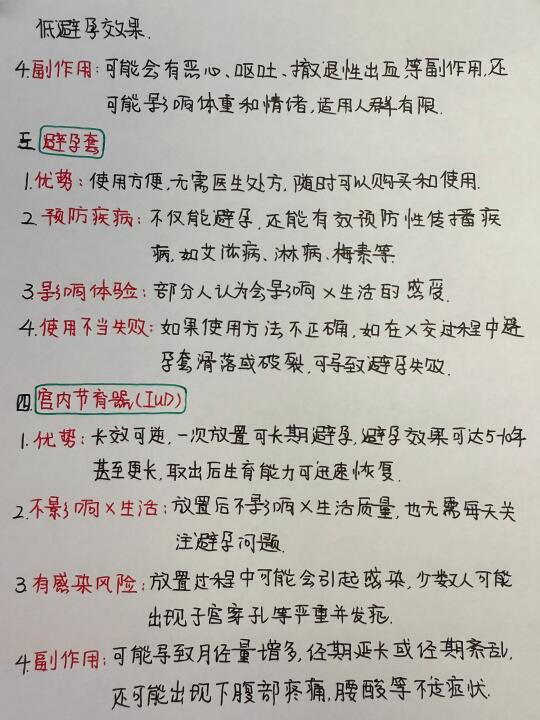 低避孕效果.
4.副作用:可能会有恶心、呕吐、撤退性出血等副作用,还
可能影响体重和情绪,适用人群有限.
三.避孕套
1.优势:使用方便,无需医生处方,随时可以购买和使用.
2.预防疾病:不仅能避孕,还能有效预防性传播疾
病,如艾滋病、淋病、梅素等.
3.影响体验:部分人认为会影响X生活的感受.
4.使用不当失败:如果使用方法不正确,如在X交过程中避
孕套滑落或破裂,可导致避孕失败.
四.宫内节育器(IUD)
1.优势:长效可逆,一次放置可长期避孕,避孕效果可达5-10年
甚至更长,取出后生育能力可迅速恢复.
2.不影响X生活:放置后不影响X生活质量,也无需每天关
注避孕问题.
3.有感染风险:放置过程中可能会引起感染,少数人可能
出现子宫穿孔等严重并发症.
4.副作用:可能导致月经量增多,经期延长或经期紊乱,
还可能出现下腹部疼痛,腰酸等不适症状.